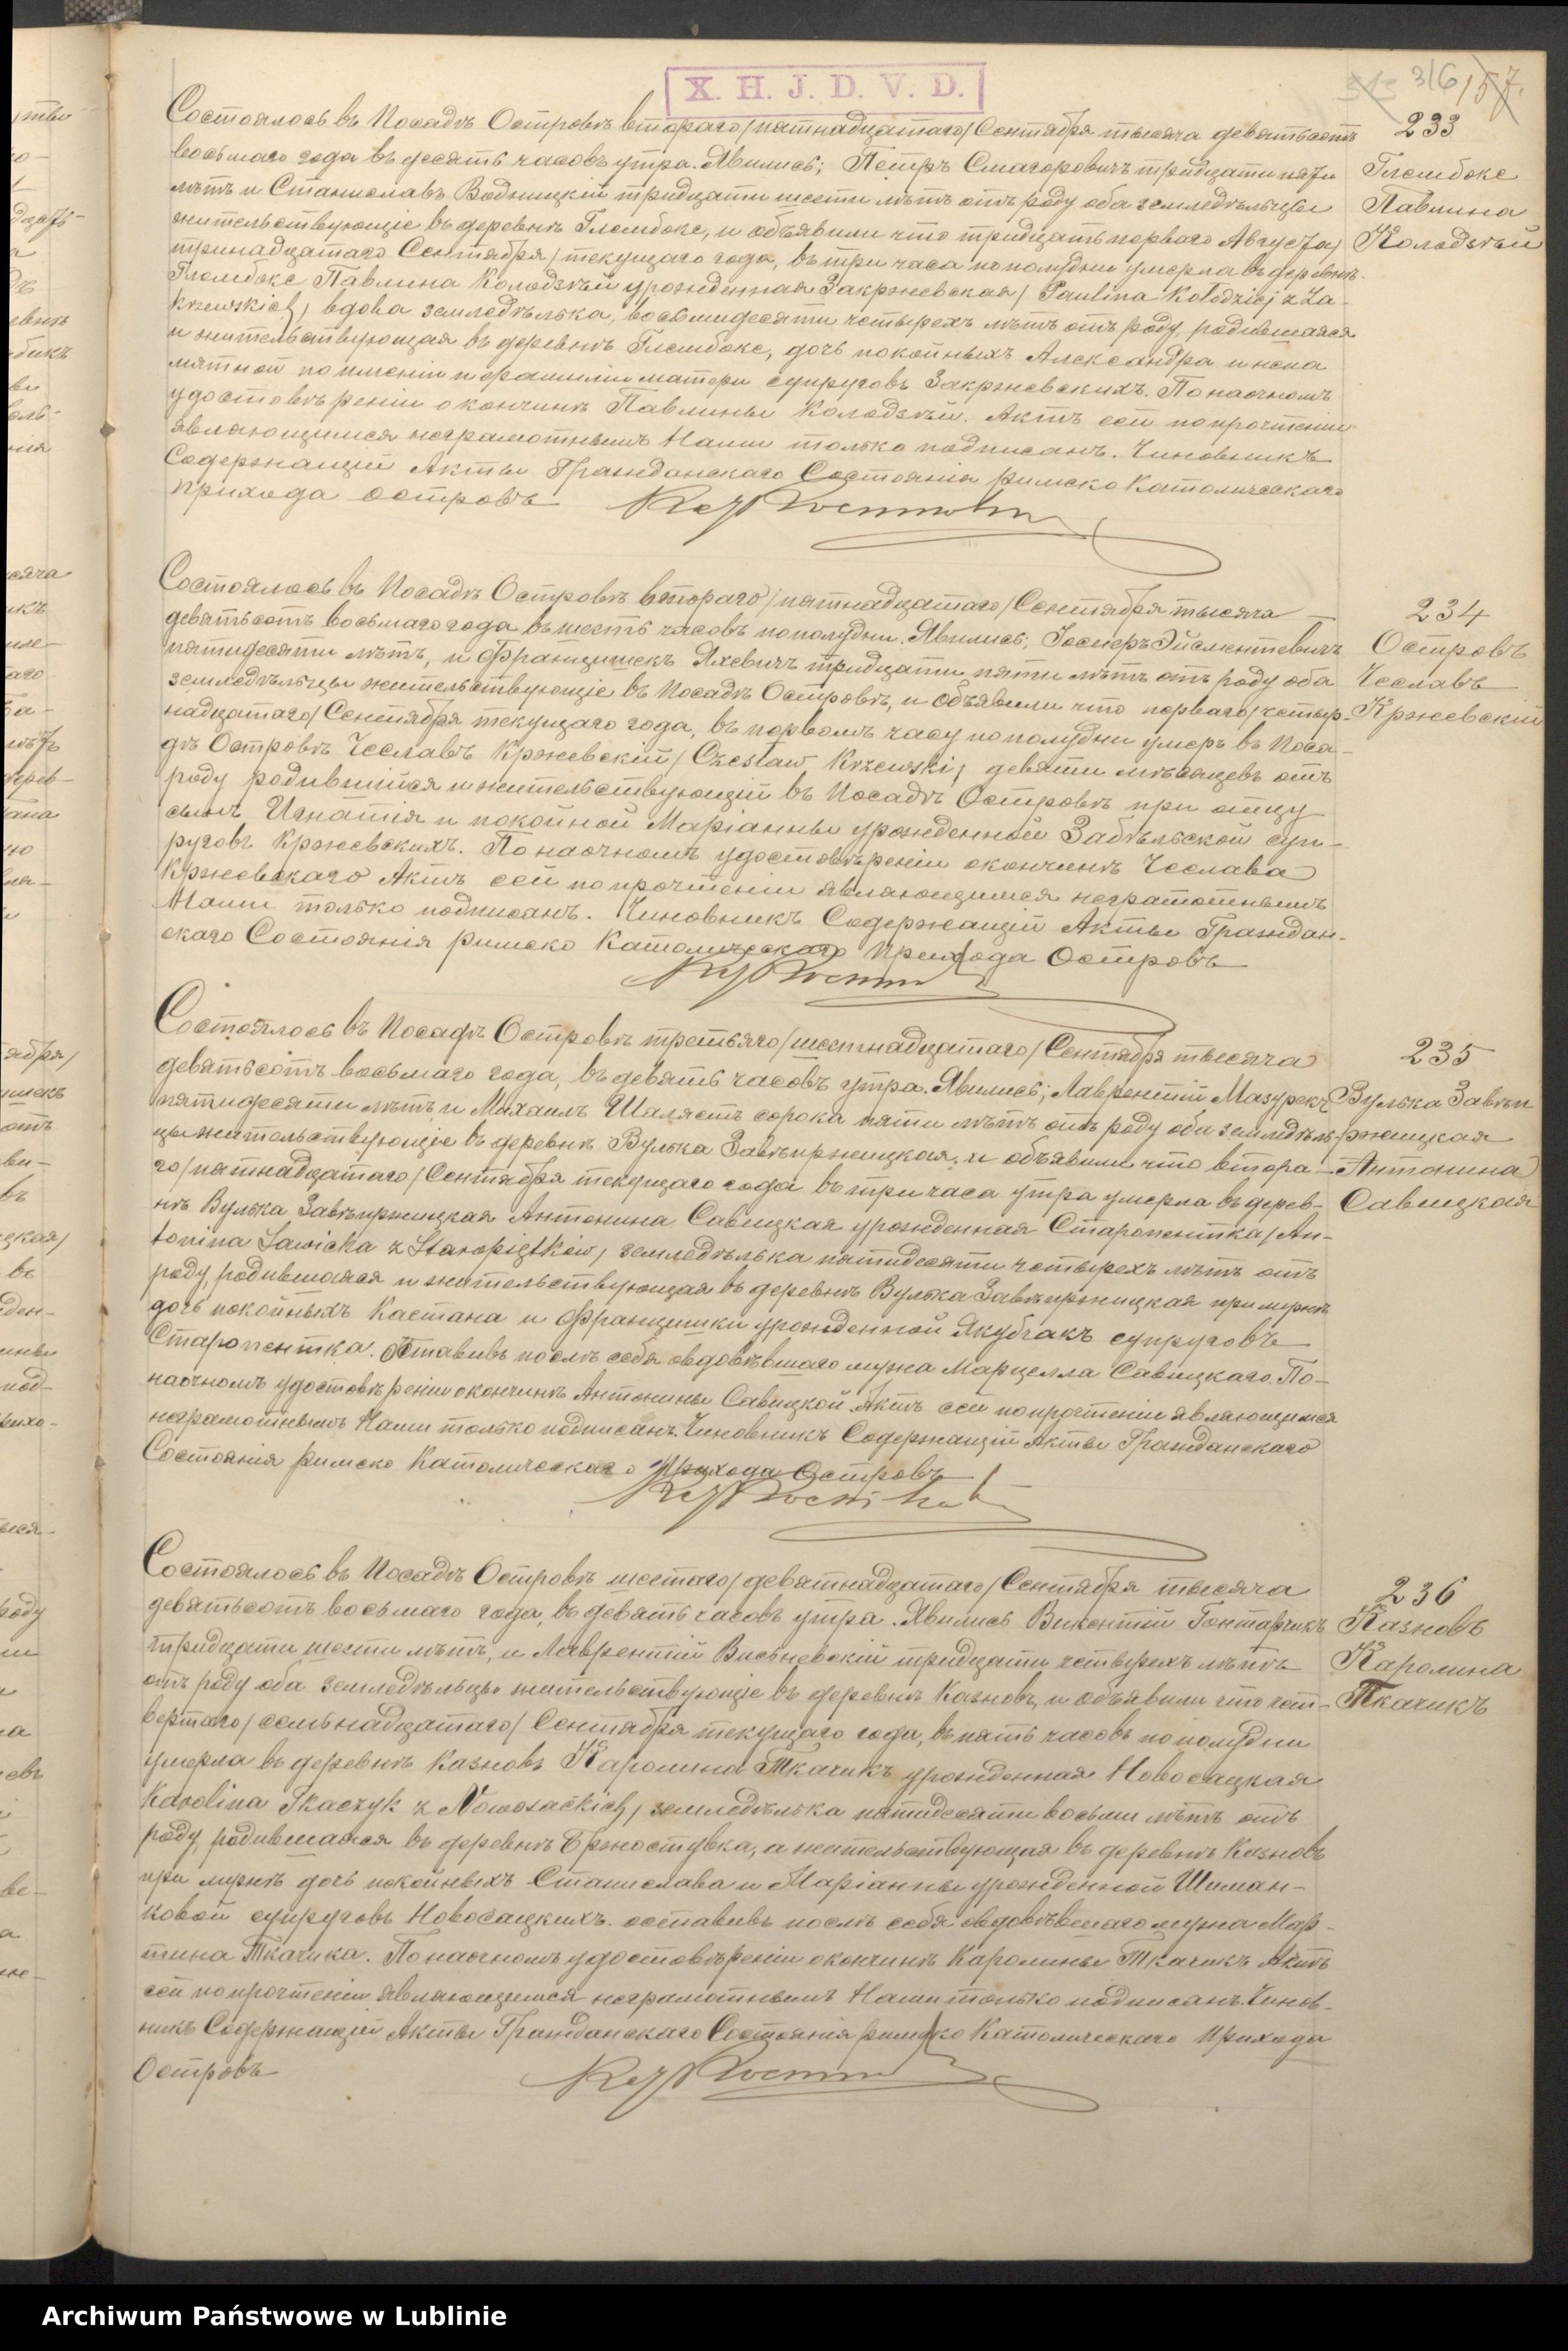 X. H. J. D. V. D.
316 157.
233
Глембоке
Павлина
Колодзѣй
Состоялось въ Посадѣ Островѣ втораго/пятнадцатаго/Сентября тысяча девятьсотъ
восьмаго года въ десять часовъ утра. Явились; Петръ Смагоровичъ тридцати пяти
лѣтъ и Станиславъ Водницкій тридцати шести лѣтъ отъ роду оба земледѣльцы
жительствующіе въ деревнѣ Глембоке, и объявили что тридцать перваго Августа/
тринадцатаго Сентября/текущаго года, въ три часа пополудни умерла въ деревнѣ
Глембоке Павлина Колодзѣй урожденная Закржевская/Paulina Kołodziej z Za-
krzewskich/ вдова земледѣлька, восьмидесяти четырехъ лѣтъ отъ роду, родившаяся
и жительствующая въ деревнѣ Глембоке, дочь покойныхъ Александра и непа
мятной по имени и фамиліи матери супруговъ Закржевскихъ. По наочномъ
удостовѣреніи о кончинѣ Павлины Колодзѣй. Актъ сей по прочтеніи
являющимся неграмотнымъ Нами только подписанъ. Чиновникъ
Содержащій Акты Гражданскаго Состоянія римско Католическаго
прихода островъ
234
Островъ
Чеславъ
Кржевскій
Состоялось въ Посадѣ Островѣ втораго/пятнадцатаго/Сентября тысяча
девятьсотъ восьмаго года въ шесть часовъ пополудни. Явились; Іосифъ Эйсментевичъ
пятидесяти лѣтъ, и Францишекъ Яхевичъ тридцати пяти лѣтъ отъ роду оба
земледѣльцы жительствующіе въ Посадѣ Островѣ, и объявили что перваго/четыр-
надцатаго/Сентября текущаго года, въ первомъ часу пополудни умеръ въ Поса-
дѣ Островѣ Чеславъ Кржевскій/Czesław Krzewski/ девяти мѣсяцевъ отъ
роду родившійся и жительствующій въ Посадѣ Островѣ при отцу
сынъ Игнатія и покойной Маріанны урожденной Забѣльской суп-
руговъ Кржевскихъ. По наочномъ удостовѣреніи окончинѣ Чеслава
Кржевскаго Актъ сей по прочтеніи являющимся неграмотнымъ
Нами только подписанъ. Чиновникъ Содержащій Акты Граждан-
скаго Состоянія римско Католическаго Прихода Островъ
235
Вулька Завѣп
ржицкая
Антонина
Савицкая
Состоялось въ Посадѣ Островѣ третьяго/шестнадцатаго/Сентября тысяча
девятьсотъ восьмаго года, въ девять часовъ утра. Явились; Лаврентій Мазурекъ
пятидесяти лѣтъ и Михаилъ Шалястъ сорока пяти лѣтъ отъ роду оба земледѣль-
цы жительствующіе въ деревнѣ Вулька Завѣпржицкая, и объявили что втора-
го/пятнадцатаго/Сентября текущаго года въ три часа утра умерла въ дерев-
нѣ Вулька Завѣпржицкая Антонина Савицкая урожденная Старопентка/An-
tonina Sawicka z Staropiętków/ земледѣлька пятидесяти четырехъ лѣтъ отъ
роду, родившаяся и жительствующая въ деревнѣ Вулька Завѣпржицкая при мужѣ
дочь покойныхъ Каетана и Францишки урожденной Якубчакъ супруговъ
Старопентка. оставивъ послѣ себя овдовѣвшаго мужа Марцелла Савицкаго. По-
наочномъ удостовѣреніи окончинѣ Антонины Савицкой Актъ сей по прочтеніи являющимся
неграмотнымъ Нами только подписанъ. Чиновникъ Содержащій Акты Гражданскаго
Состоянія римско Католическаго Прихода Островъ
236
Казновъ
Каролина
Ткачикъ
Состоялось въ Посадѣ Островѣ шестаго/девятнадцатаго/Сентября тысяча
девятьсотъ восьмаго года, въ девять часовъ утра. Явились Викентій Гонтарчикъ
тридцати шести лѣтъ, и Лаврентій Висьневскій тридцати четырехъ лѣтъ
отъ роду оба земледѣльцы жительствующіе въ деревнѣ Казновъ, и объявили что чет-
вертаго/семьнадцатаго/Сентября текущаго года, въ пять часовъ пополудни
умерла въ деревнѣ Казновъ Каролина Ткачикъ урожденная Новосацкая
Karolina Tkaczyk z Nowosackich/ земледѣлька пятидесяти восьми лѣтъ отъ
роду, родившаяся въ деревнѣ Бржостувка, а жительствующая въ деревнѣ Казновъ
при мужѣ дочь покойныхъ Станислава и Маріанны урожденной Шиман-
ковой супруговъ Новосацкихъ. оставивъ послѣ себя овдовѣвшаго мужа Мар-
тина Ткачика. По наочномъ удостовѣреніи окончинѣ Каролины Ткачикъ Актъ
сей по прочтеніи являющимся неграмотнымъ Нами только подписанъ. Чинов-
никъ Содержащій Акты Гражданскаго Состоянія римско Католическаго Прихода
Островъ
Archiwum Państwowe w Lublinie